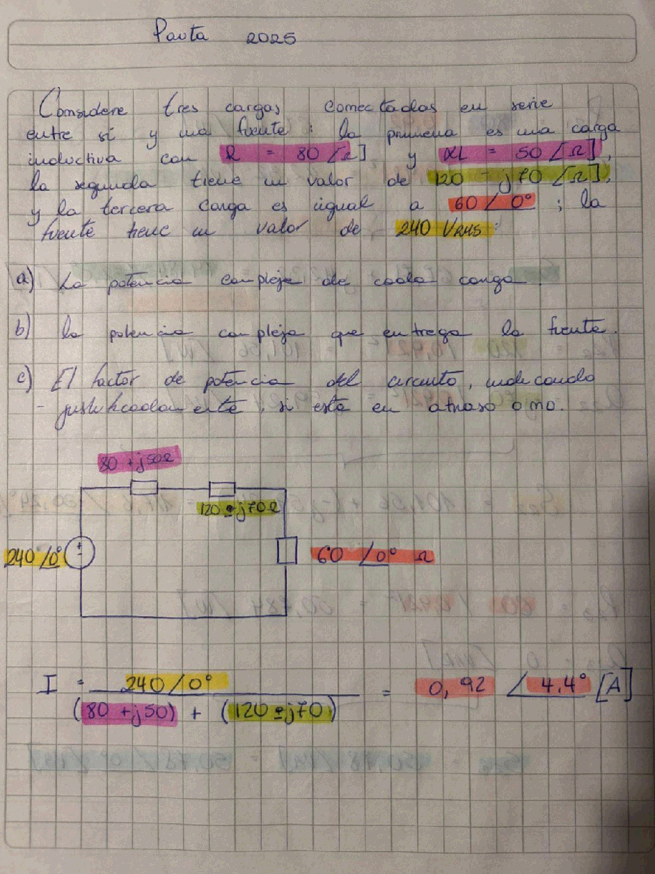 Pauta 2025
Considere tres cargas conectadas en serie
entre sí y una fuente: la primera es una carga
inductiva con R = 80 [Ω] y XL = 50 [Ω],
la segunda tiene un valor de 120 - j70 [Ω],
y la tercera carga es igual a 60 ∠0° ; la
fuente tiene un valor de 240 VRMS.
a) La potencia compleja de cada carga.
b) la potencia compleja que entrega la fuente.
c) El factor de potencia del circuito, indicando
justificadamente, si está en atraso o no.
80 + j50Ω
120 - j70Ω
240 ∠0°
60 ∠0° Ω
I = 240 ∠0° / (80 + j50) + (120 - j70) = 0,92 ∠4,4° [A]